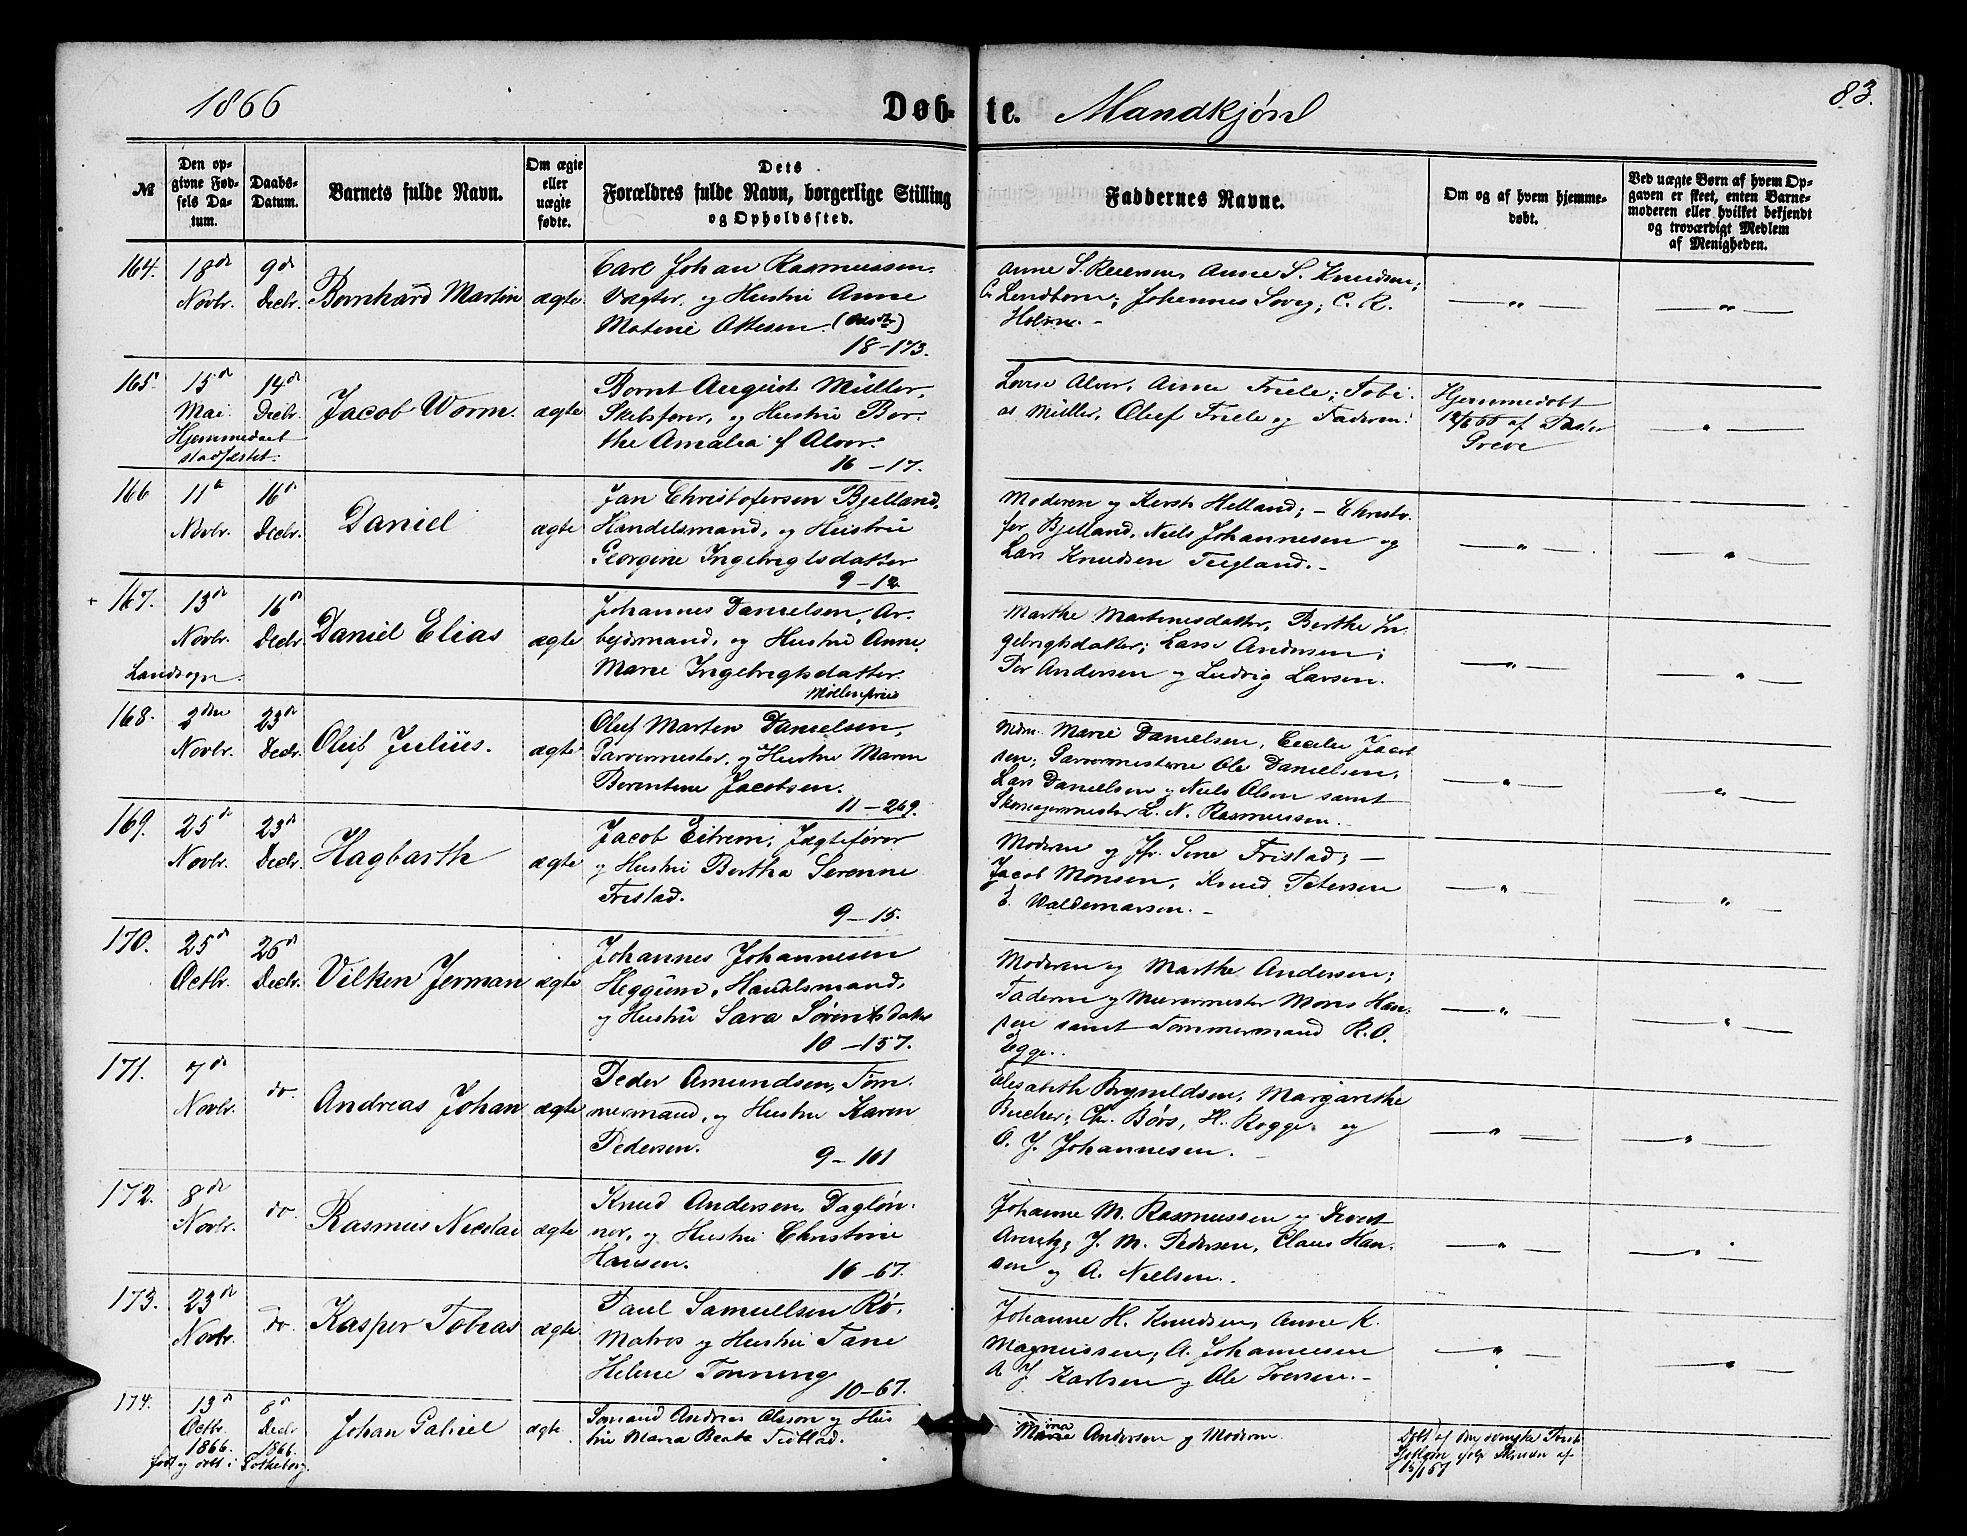 1866
Døb-te. Mandkjøn
83.
№
Den opgivne Fødsels Datum.
Daabs-Datum.
Barnets fulde Navn.
Om ægte eller uægte fødte.
Dets Forældres fulde Navn, borgerlige Stilling og Opholdssted.
Faddernes Navne.
Om og af hvem hjemmedøbt.
Ved uægte Børn af hvem Opgaven er skeet, enten Barnemoderen eller hvilket bekjendt og troværdigt Medlem af Menigheden.
164.
18de Novbr.
9de Decbr.
Bernhard Martin
ægte
Carl Johan Rasmussen,
Vægter, og Hustru Anne
Matene Ottesen.
18-173.
Anne S. Reiersen, Anne S. Knudsen;
Johannes Soveg; C. R.
Holm.-
165.
15de Mai.
14de Decbr.
Hjemmedaab
stadfæstet.
Jacob Worm.
ægte
Bernt August Müller,
Skibsfører, og Hustru Ber-
the Amalia f Alver.
16-17.
Lovise Alver, Anne Friele; Tobi-
as Müller, Oluf Friele og Faderen.
Hjemmedøbt
af
Greve
166
11te Novbr.
16de Decbr.
Daniel
ægte
Jan Christofersen Bjelland,
Handelsmand, og Hustru
Georgine Ingebrigtsdatter
9-12.
Moderen og Kirst. Helland; - Christo-
fer Bjelland, Niels Johannesen og
Lars Knudsen Tegland.-
167.
13de Novbr.
16de Decbr.
Landsogn.
Daniel Elias
ægte
Johannes Danielsen, Ar-
bejdsmand, og Hustru Anne
Marie Ingebrigtsdatter.
Marthe Martinesdatter, Berthe In-
gebrigtsdatter; Lars Andersen;
Per Andersen og Ludvig Larsen.
168.
2den Novbr.
23de Decbr.
Oluf Julius.
ægte
Oluf Martin Danielsen,
Garvermester, og Hustru Maren
Berentine Jacobsen.
11-269.
Mdm. Marie Danielsen, Cecilie Jacob-
sen; Garvermesterne Ole Danielsen,
Lars Danielsen og Niels Olsen samt
Skomagermester L. N. Rasmussen.-
169.
25de Novbr.
23de Decbr.
Hagbarth
ægte
Jacob Eitrem, Jægtefører
og Hustru Bertha Serenne
Fristad.
9-15.
Moderen og Jfr. Sine Fristad; -
Jacob Monsen, Knud Petersen
E. Waldemarsen.-
170.
25de Octbr.
26de Decbr.
Vilken Jerman
ægte
Johannes Johannesen
Heggum, Handelsmand,
og Hustru Sara Sørentsdatter
10-157.
Moderen og Marthe Andersen;
Faderen og Murermester Mons Han-
sen samt Tømmermand R. O.
Egge.
171.
7de Novbr.
do.
Andreas Johan
ægte
Peder Amundsen, Tøm-
mermand, og Hustru Karen
Pedersen.
9-101
Elisabeth Brynildsen, Margarethe
Bucher; Chr. Børs, H. Rogge og
O. J. Johannesen.
172.
8de Novbr.
do.
Rasmus Nicolai
ægte
Knud Andersen, Dagløn-
ner, og Hustru Christine
Hansen.
16-67.
Johanne M. Rasmussen og
J. M. Pedersen, Claus Han-
sen og A. Nielsen.
173.
23de Novbr.
do.
Kasper Tobias
ægte
Paul Samuelsen Rø,
Matros og Hustru Tane
Helene Tonning
10-67.
Johanne H. Knudsen, Anne K.
Magnussen; A. Johannesen
A J Karlsen og Ole Iversen.-
174.
13de Octbr. 1866.
8de Decbr 1866.
født og døbt i Gotheborg.
Johan Gabriel
ægte
Sømand Andreas Olsson og Hus-
tru Maria Beata Tidblad.
Mina Andersen og Moderen
Døbt af den svenske